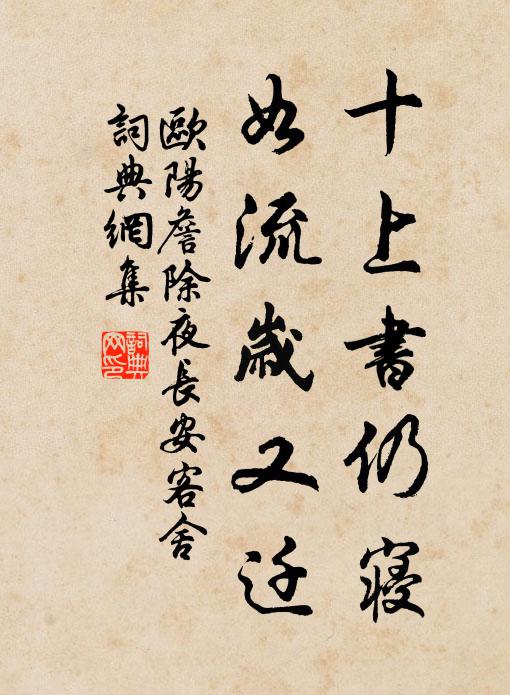 十上書仍寝
如流歲又迁
歐陽詹除夜長安客舍
詞典網集
詞典
网印